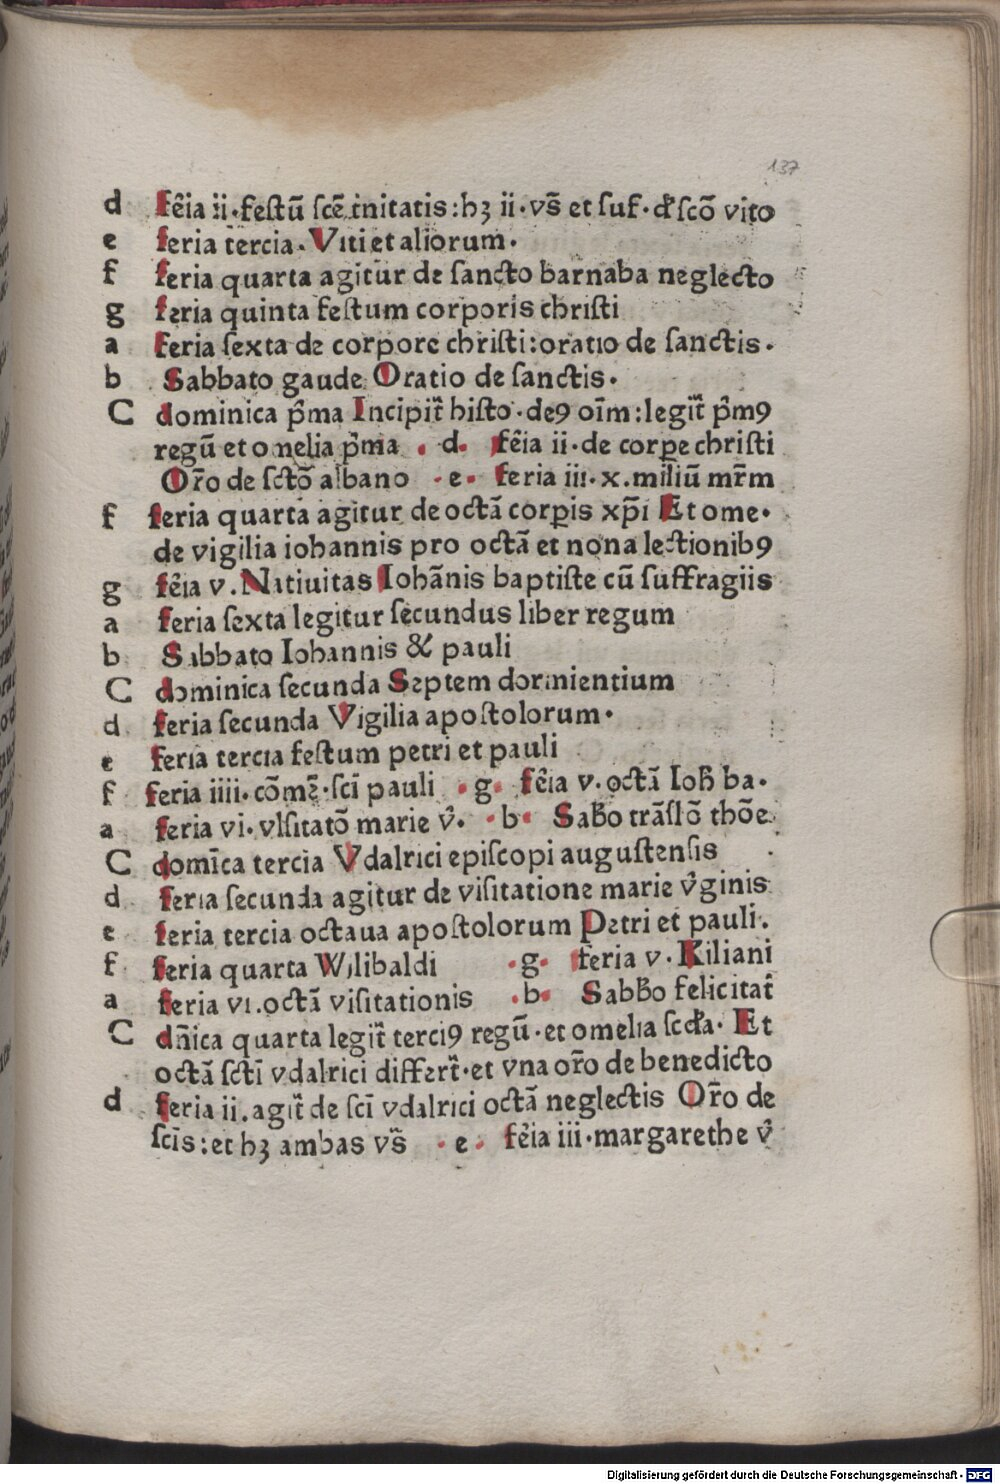 137
d fêia ii·festū scē trinitatis:hꝫ ii·vs̄ et suf·đ scō vito
e feria tercia·Viti et aliorum·
f feria quarta agitur de sancto barnaba neglecto
g feria quinta festum corporis christi
a feria sexta de corpore christi:oratio de sanctis·
b Sabbato gaude Oratio de sanctis·
C dominica p̂ma Incipit᷑ histo·deꝰ oīm:legit᷑ p̂mꝰ
regū et omelia p̂ma ·d· fêia ii·de corpe christi
Or̄o de sctō albano ·e· feria iii·x.miliū mr̄m
f feria quarta agitur de octā corpis xp̄i Et ome·
de vigilia iohannis pro octā et nona lectionibꝰ
g fêia v.Natiuitas Iohānis baptiste cū suffragiis
a feria sexta legitur secundus liber regum
b Sabbato Iohannis & pauli
C dominica secunda Septem dormientium
d feria secunda Vigilia apostolorum·
e feria tercia festum petri et pauli
f feria iiii·cōmē·sci pauli ·g· fêia v·octā Ioh̄ ba·
a feria vi·vlsitatō marie v̂· ·b· Sab̄o trāslō thōe
C domīca tercia Vdalrici episcopi augustensis
d feria secunda agitur de visitatione marie v̂ginis
e feria tercia octaua apostolorum Petri et pauli.
f feria quarta Wilibaldi ·g· feria v·Kiliani
a feria vi.octā visitationis .b· Sabb̄o felicitat᷑
C dn̄ica quarta legit᷑ terciꝰ regū·et omelia scđa·Et
octā sctī vdalrici differt᷑·et vna or̄o de benedicto
d feria ii.agit᷑ de sci vdalrici octā neglectis Or̄o de
scīs:et hꝫ ambas vs̄ ·e· fêia iii·margarethe v̂
Digitalisierung gefördert durch die Deutsche Forschungsgemeinschaft - DFG